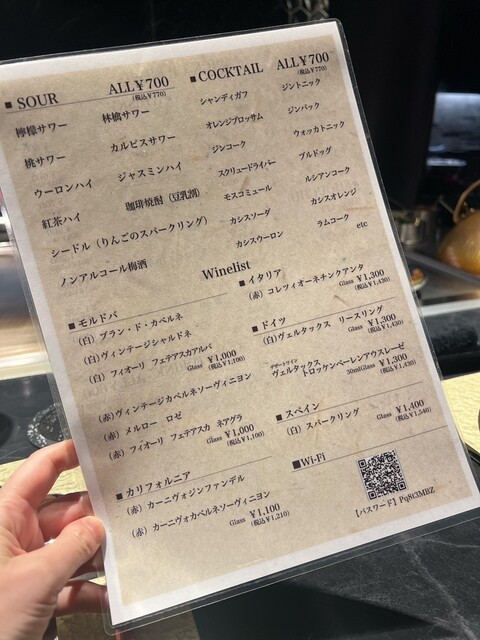 ■ SOUR ALL¥700
(税込¥770)
檸檬サワー 林檎サワー
桃サワー カルピスサワー
ウーロンハイ ジャスミンハイ
紅茶ハイ 珈琲焼酎（豆乳割）
シードル（りんごのスパークリング）
ノンアルコール梅酒
■ COCKTAIL ALL¥700
(税込¥770)
シャンディガフ ジントニック
オレンジブロッサム ジンバック
ジンコーク ウォッカトニック
スクリュードライバー ブルドッグ
モスコミュール ルシアンコーク
カシスソーダ カシスオレンジ
カシスウーロン ラムコーク
etc
Winelist
■ モルドバ
（白）ブラン・ド・カベルネ
（白）ヴィンテージシャルドネ
（白）フィオーリ フェテアスカアルバ
Glass ¥1,000
(税込¥1,100)
（赤）ヴィンテージカベルネソーヴィニヨン
（赤）メルロー ロゼ
（赤）フィオーリ フェテアスカ ネアグラ
Glass ¥1,000
(税込¥1,100)
■ カリフォルニア
（赤）カーニヴォジンファンデル
（赤）カーニヴォカベルネソーヴィニヨン
Glass ¥1,100
(税込¥1,210)
■ イタリア
（赤）コレフィオーネチンクアンタ
Glass ¥1,300
(税込¥1,430)
■ ドイツ
（白）ヴェルタックス リースリング
Glass ¥1,300
(税込¥1,430)
デザートワイン
ヴェルタックス トロッケンベーレンアウスレーゼ
30mlGlass ¥1,300
(税込¥1,430)
■ スペイン
（白）スパークリング
Glass ¥1,400
(税込¥1,540)
■Wi-Fi
【パスワード】Pq8t3MBZ